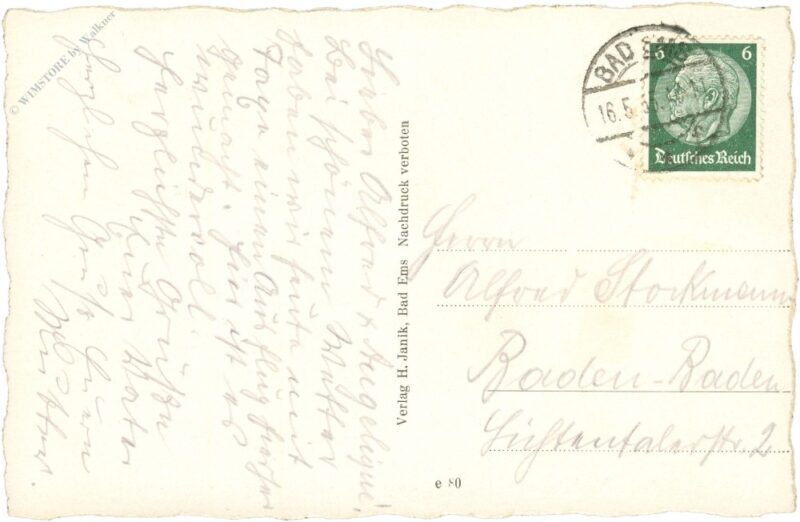 Lieber Alfred & Angelique!
Bei schönem Wetter
haben wir heute mit
einen Ausflug hierher
gemacht. Hier ist es
wundervoll.
Herzliche Grüße
Euer Vater
Herzlichen Gruß Euere
Mutter.
Verlag H. Janik, Bad Ems Nachdruck verboten
e 80
BAD EMS
16.5.3
6 6
Deutsches Reich
Herrn
Alfred Stockmann
Baden-Baden
Lichtentalerstr. 2
© WIMSTORE by Walkner